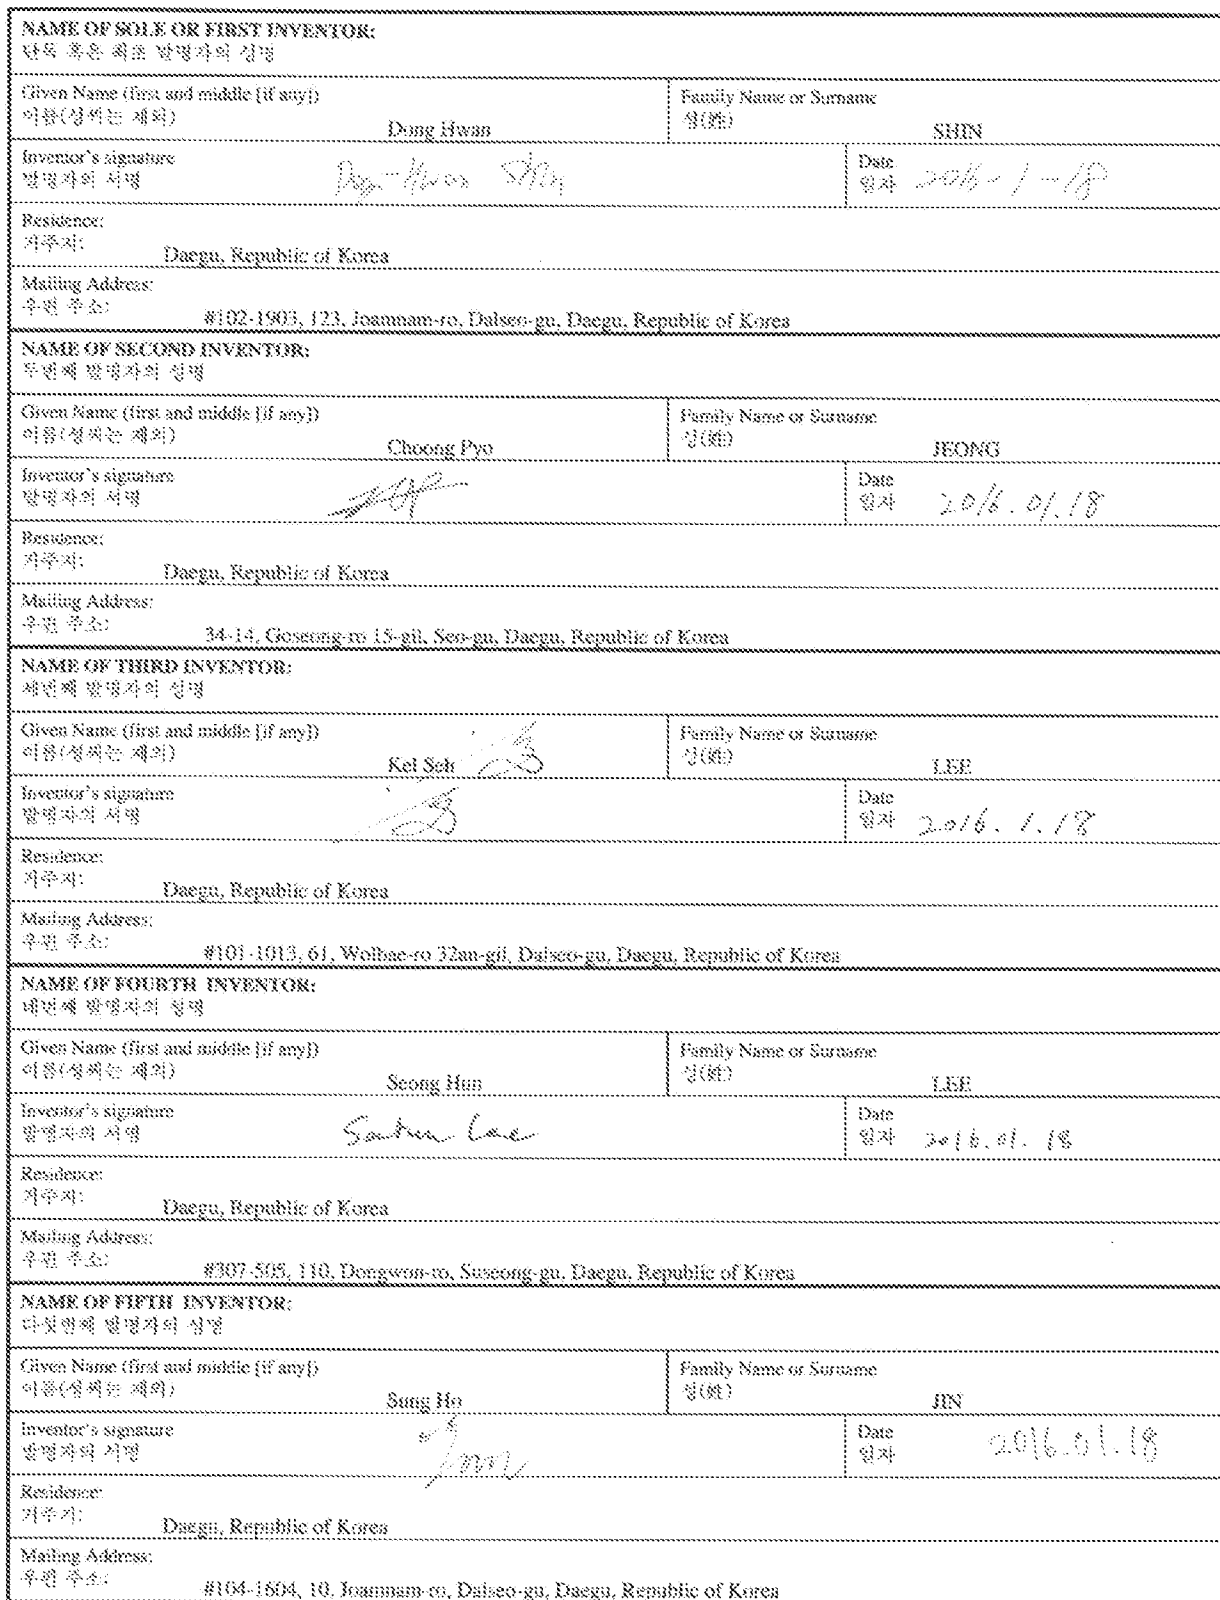 NAME OF SOLE OR FIRST INVENTOR:
단독 혹은 최초 발명자의 성명
Given Name (first and middle [if any])
이름(성씨는 제외)
Dong Hwan
Family Name or Surname
성(姓)
SHIN
Inventor's signature
발명자의 서명
Date
일자 2016-1-18
Residence:
거주지:
Daegu, Republic of Korea
Mailing Address:
우편 주소:
#102-1903, 123, Joamnam-ro, Dalseo-gu, Daegu, Republic of Korea
NAME OF SECOND INVENTOR:
두번째 발명자의 성명
Given Name (first and middle [if any])
이름(성씨는 제외)
Choong Pyo
Family Name or Surname
성(姓)
JEONG
Inventor's signature
발명자의 서명
Date
일자 2016.01.18
Residence:
거주지:
Daegu, Republic of Korea
Mailing Address:
우편 주소:
34-14, Goseong-ro 15-gil, Seo-gu, Daegu, Republic of Korea
NAME OF THIRD INVENTOR:
세번째 발명자의 성명
Given Name (first and middle [if any])
이름(성씨는 제외)
Family Name or Surname
성(姓)
LEE
Inventor's signature
발명자의 서명
Date
일자 2016.1.18
Residence:
거주지:
Daegu, Republic of Korea
Mailing Address:
우편 주소:
#101-1013, 61, Wolbae-ro 32an-gil, Dalseo-gu, Daegu, Republic of Korea
NAME OF FOURTH INVENTOR:
네번째 발명자의 성명
Given Name (first and middle [if any])
이름(성씨는 제외)
Seong Hun
Family Name or Surname
성(姓)
LEE
Inventor's signature
발명자의 서명
Date
일자 2016.01.18
Residence:
거주지:
Daegu, Republic of Korea
Mailing Address:
우편 주소:
#307-505, 110, Dongwon-ro, Suseong-gu, Daegu, Republic of Korea
NAME OF FIFTH INVENTOR:
다섯번째 발명자의 성명
Given Name (first and middle [if any])
이름(성씨는 제외)
Sung Ho
Family Name or Surname
성(姓)
JIN
Inventor's signature
발명자의 서명
Date
일자 2016.01.18
Residence:
거주지:
Daegu, Republic of Korea
Mailing Address:
우편 주소:
#104-1604, 10, Joamnam-ro, Dalseo-gu, Daegu, Republic of Korea